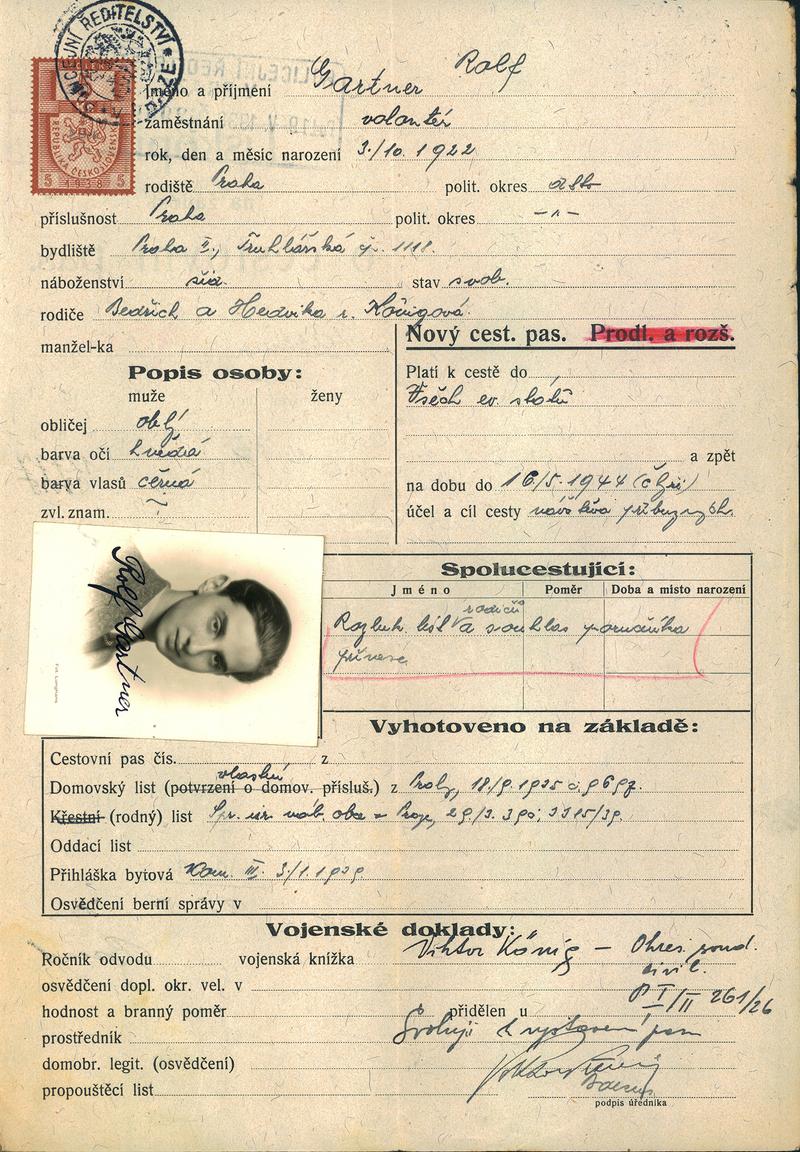 POLICEJNÍ ŘEDITELSTVÍ V PRAZE
REPUBLIKA ČESKOSLOVENSKÁ
5 1938 5
Jméno a příjmení Gärtner Rolf
zaměstnání volontér
rok, den a měsíc narození 3./10. 1922
rodiště Praha polit. okres
příslušnost Praha polit. okres –"–
bydliště Praha II., Truhlářská č. 1118.
náboženství žid. stav svob.
rodiče Bedřich a Hedvika r. Königová.
manžel-ka
Nový cest. pas. Prodl. a rozš.
Popis osoby:
muže ženy
obličej oblý
barva očí hnědá
barva vlasů černá
zvl. znam.
Platí k cestě do
Všech ev. států
a zpět
na dobu do 16/5. 1944
účel a cíl cesty návštěva příbuzných.
Rolf Gärtner
Spolucestující:
Jméno Poměr Doba a místo narození
rodičů
Rozluk. list a souhlas poručníka
přinese
Vyhotoveno na základě:
Cestovní pas čís. z
vlastní
Domovský list (potvrzení o domov. přísluš.) z Prahy, 18/9. 1935
Křestní (rodný) list Spr. isr. náb. obce v Praze,
Oddací list
Přihláška bytová Kom. III. 3/1. 1939
Osvědčení berní správy v
Vojenské doklady:
Ročník odvodu vojenská knížka
Viktor König – Okres. soud.
civil.
osvědčení dopl. okr. vel. v
P I/II 261/26
hodnost a branný poměr přidělen u
Svoluji k vystavení pasu
prostředník
domobr. legit. (osvědčení)
Viktor König
propouštěcí list
podpis úředníka